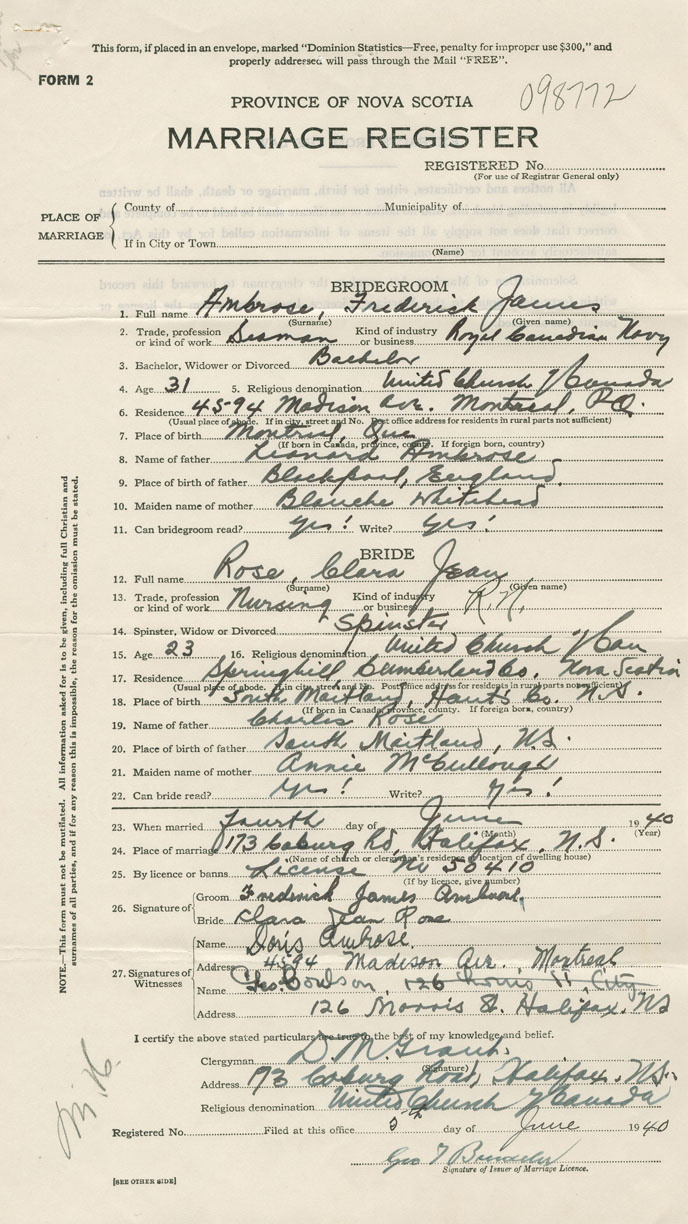 This form, if placed in an envelope, marked "Dominion Statistics—Free, penalty for improper use $300," and
properly addressed will pass through the Mail "FREE".
FORM 2
098772
PROVINCE OF NOVA SCOTIA
MARRIAGE REGISTER
REGISTERED No.
(For use of Registrar General only)
PLACE OF MARRIAGE
County of Municipality of
If in City or Town
(Name)
BRIDEGROOM
1. Full name Ambrose, Frederick James
(Surname) (Given name)
2. Trade, profession or kind of work Seaman Kind of industry or business Royal Canadian Navy
3. Bachelor, Widower or Divorced Bachelor
4. Age 31 5. Religious denomination United Church of Canada
6. Residence 4594 Madison Ave. Montreal, P.Q.
(Usual place of abode. If in city, street and No. Post office address for residents in rural parts not sufficient)
7. Place of birth Montreal, Que
(If born in Canada, province, county. If foreign born, country)
8. Name of father Leonard Ambrose
9. Place of birth of father Blackpool, England
10. Maiden name of mother Blanche Whitehead
11. Can bridegroom read? Yes! Write? Yes!
BRIDE
12. Full name Rose, Clara Jean
(Surname) (Given name)
13. Trade, profession or kind of work Nursing Kind of industry or business R.N.
14. Spinster, Widow or Divorced Spinster
15. Age 23 16. Religious denomination United Church of Can
17. Residence Springhill Cumberland Co. Nova Scotia
(Usual place of abode. If in city, street and No. Post office address for residents in rural parts not sufficient)
18. Place of birth South Maitland, Hants Co. N.S.
(If born in Canada, province, county. If foreign born, country)
19. Name of father Charles Rose
20. Place of birth of father South Maitland, N.S.
21. Maiden name of mother Annie McCullough
22. Can bride read? Yes! Write? Yes!
23. When married Fourth day of June 1940
(Month) (Year)
24. Place of marriage 173 Coburg Rd, Halifax, N.S.
(Name of church or clergyman's residence or location of dwelling house)
25. By licence or banns License No 50410
(If by licence, give number)
26. Signature of
Groom Frederick James Ambrose.
Bride Clara Jean Rose
27. Signatures of Witnesses
Name Doris Ambrose.
Address 4594 Madison Ave. Montreal
Name Geo. 126 Morris St. City
Address 126 Morris St. Halifax. NS
I certify the above stated particulars are true to the best of my knowledge and belief.
Clergyman D. M. Grant.
(Signature)
Address 173 Coburg Road, Halifax. N.S.
Religious denomination United Church of Canada
Registered No. Filed at this office 5th day of June 1940
Geo T
Signature of Issuer of Marriage Licence.
[SEE OTHER SIDE]
NOTE.—This form must not be mutilated. All information asked for is to be given, including full Christian and
surnames of all parties, and if for any reason this is impossible, the reason for the omission must be stated.